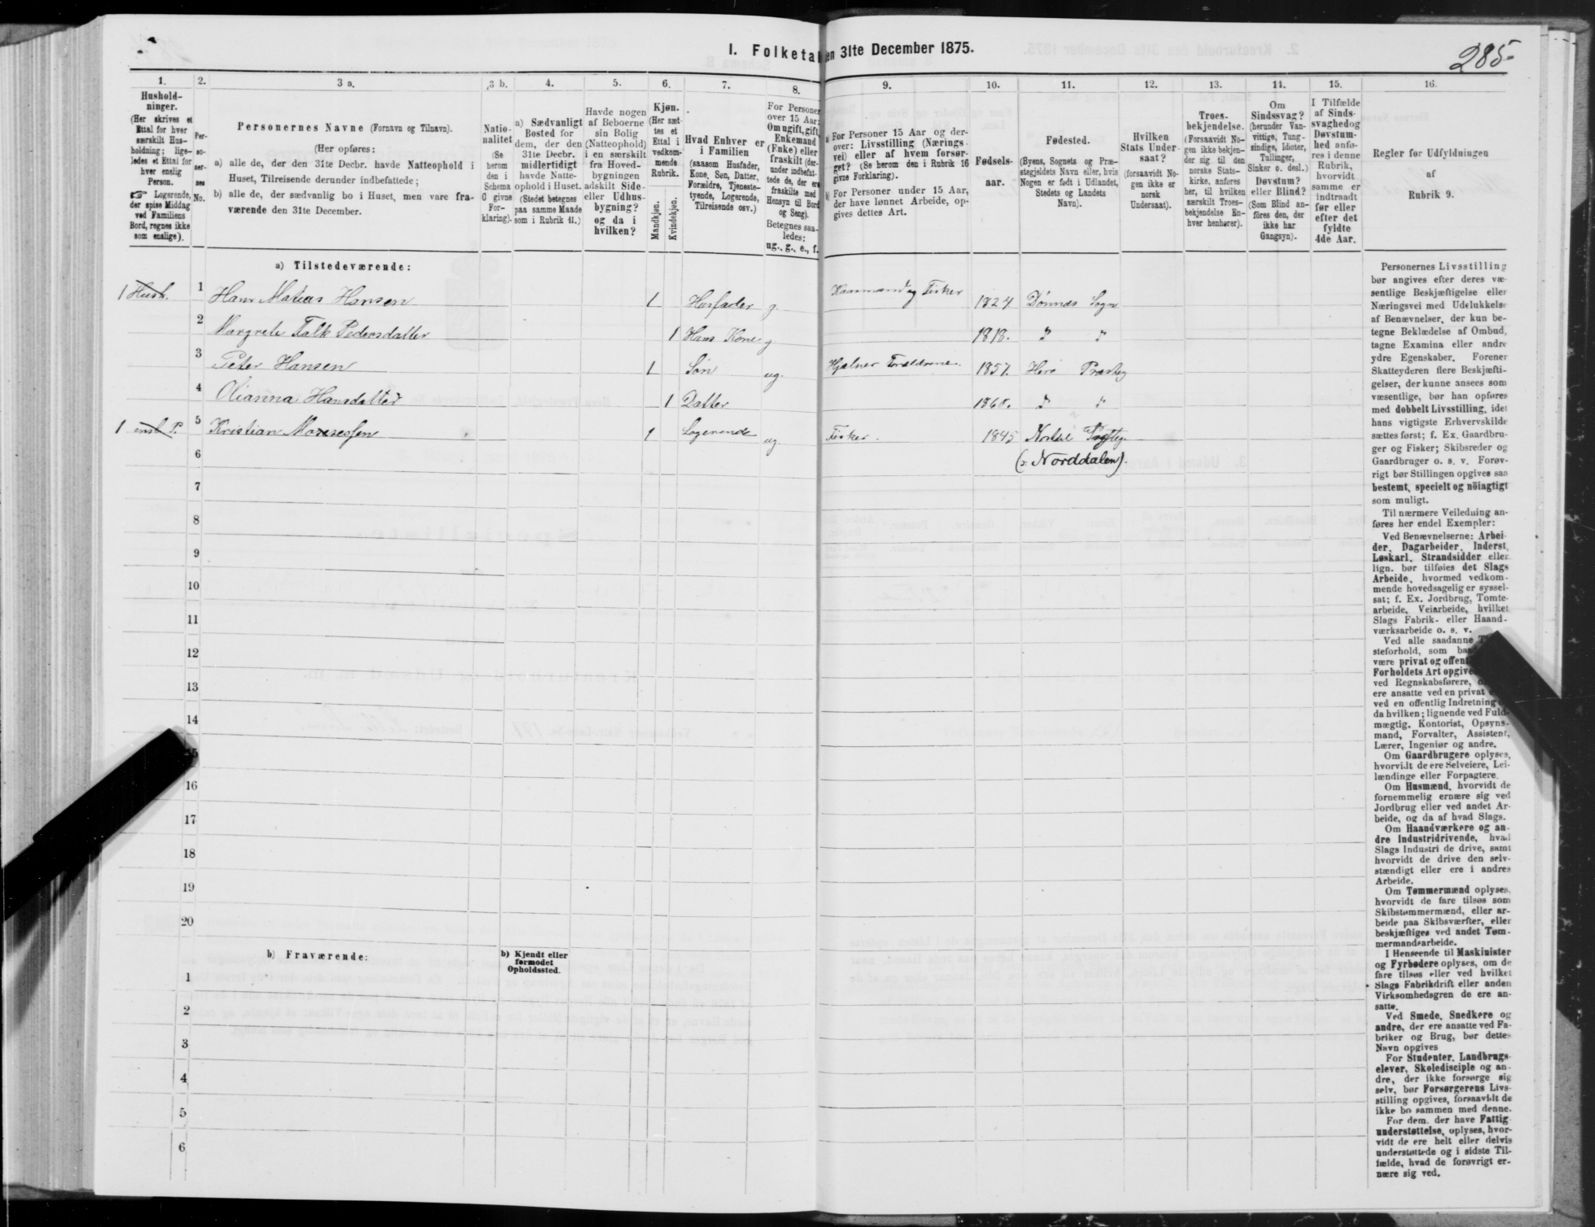 I. Folketal den 31te December 1875.
285
1.
Hushold-
ninger.
(Her skrives et
Ettal for hver
særskilt Hus-
holdning; lige-
ledes et Ettal for
hver enslig
Person.
☞ Logerende,
der spise Middag
ved Familiens
Bord, regnes ikke
som enslige).
2.
Per-
so-
ner-
nes
No.
3 a.
Personernes Navne (Fornavn og Tilnavn).
(Her opføres:
a) alle de, der den 31te Decbr. havde Natteophold i
Huset, Tilreisende derunder indbefattede;
b) alle de, der sædvanlig bo i Huset, men vare fra-
værende den 31te December.
3 b.
Natio-
nalitet
(Se
herom
den i
Schema
C givne
For-
klaring).
4.
a) Sædvanligt
Bosted for
dem, der den
31te Decbr.
midlertidigt
havde Natte-
ophold i Huset.
(Stedet betegnes
paa samme Maade
som i Rubrik 11.)
5.
Havde nogen
af Beboerne
sin Bolig
(Natteophold)
i en særskilt
fra Hoved-
bygningen
adskilt Side-
eller Udhus-
bygning?
og da i
hvilken?
6.
Kjøn.
(Her sæt-
tes et
Ettal i
vedkom-
mende
Rubrik.
Mandkjøn.
Kvindekjøn.
7.
Hvad Enhver er
i Familien
(saasom Husfader,
Kone, Søn, Datter,
Forældre, Tjeneste-
tyende, Logerende,
Tilreisende osv.)
8.
For Personer
over 15 Aar:
Om ugift, gift,
Enkemand
(Enke) eller
fraskilt (der-
under indbefat-
tede de, der ere
fraskilte med
Hensyn til Bord
og Seng).
Betegnes saa-
ledes:
ug., g., e., f.
9.
a) For Personer 15 Aar og der-
over: Livsstilling (Nærings-
vei) eller af hvem forsør-
get? (Se herom den i Rubrik 16
givne Forklaring).
b) For Personer under 15 Aar,
der have lønnet Arbeide, op-
gives dettes Art.
10.
Fødsels-
aar.
11.
Fødested.
(Byens, Sognets og Præ-
stegjeldets Navn eller, hvis
Nogen er født i Udlandet,
Stedets og Landets
Navn).
12.
Hvilken
Stats Under-
saat?
(forsaavidt No-
gen ikke er
norsk
Undersaat).
13.
Troes-
bekjendelse.
(Forsaavidt No-
gen ikke bekjen-
der sig til den
norske Stats-
kirke, anføres
her, til hvilken
særskilt Troes-
bekjendelse En-
hver henhører).
14.
Om
Sindssvag?
(herunder Van-
vittige, Tung-
sindige, Idioter,
Tullinger,
Sinker o. desl.)
Døvstum?
eller Blind?
(Som Blind an-
føres den, der
ikke har
Gangsyn).
15.
I Tilfælde
af Sinds-
svaghed og
Døvstum-
hed anfø-
res i denne
Rubrik,
hvorvidt
samme er
indtraadt
før eller
efter det
fyldte
4de Aar.
16.
Regler for Udfyldningen
af
Rubrik 9.
a) Tilstedeværende:
1 Hush. 1 Hans Matias Hansen 1 Husfader g Husmand og Fisker 1824 Dønnes Sogn
2 Margrete Falk Pedersdatter 1 Hans Kone g 1818. " "
3 Peter Hansen 1 Søn ug. Hjælper Forældrene 1857. Herø Præsteg
4 Olianna Hansdatter 1 Datter 1860. " "
1 ensl. P. 5 Kristian 1 Logerende ug. Fisker. 1845
(: Norddalen).
6
7
8
9
10
11
12
13
14
16
17
18
19
20
b) Fraværende:
b) Kjendt eller
formodet
Opholdssted.
1
2
3
4
5
6
Personernes Livsstilling
bør angives efter deres væ-
sentlige Beskjæftigelse eller
Næringsvei med Udelukkelse
af Benævnelser, der kun be-
tegne Beklædelse af Ombud,
tagne Examina eller andre
ydre Egenskaber. Forener
Skatteyderen flere Beskjæfti-
gelser, der kunne ansees som
væsentlige, bør han opføres
med dobbelt Livsstilling, idet
hans vigtigste Erhvervskilde
sættes først; f. Ex. Gaardbru-
ger og Fisker; Skibsreder og
Gaardbruger o. s. v. Forøv-
rigt bør Stillingen opgives saa
bestemt, specielt og nöiagtigt
som muligt.
Til nærmere Veiledning an-
føres her endel Exempler:
Ved Benævnelserne: Arbei-
der, Dagarbeider, Inderst,
Løskarl, Strandsidder eller
lign. bør tilføies det Slags
Arbeide, hvormed vedkom-
mende hovedsagelig er syssel-
sat; f. Ex. Jordbrug, Tomte-
arbeide, Veiarbeide, hvilket
Slags Fabrik- eller Haand-
værksarbeide o. s. v.
Ved alle saadanne
steforhold, som
være privat og
Forholdets Art
ved Regnskabsførere,
ere ansatte ved en privat
ved en offentlig Indretning
da hvilken; lignende ved Fuld-
mægtig, Kontorist, Opsyns-
mand, Forvalter, Assistent,
Lærer, Ingeniør og andre.
Om Gaardbrugere oplyses,
hvorvidt de ere Selveiere, Lei-
lændinge eller Forpagtere.
Om Husmænd, hvorvidt de
fornemmelig ernære sig ved
Jordbrug eller ved andet Ar-
beide, og da af hvad Slags.
Om Haandværkere og an-
dre Industridrivende, hvad
Slags Industri de drive, samt
hvorvidt de drive den selv-
stændigt eller ere i andres
Arbeide.
Om Tømmermænd oplyses,
hvorvidt de fare tilsøs som
Skibstømmermænd, eller ar-
beide paa Skibsværfter, eller
beskjæftiges ved andet Tøm-
mermandsarbeide.
I Henseende til Maskinister
og Fyrbødere oplyses, om de
fare tilsøs eller ved hvilket
Slags Fabrikdrift eller anden
Virksomhedsgren de ere an-
satte.
Ved Smede, Snedkere og
andre, der ere ansatte ved Fa-
briker og Brug, bør dettes
Navn opgives
For Studenter, Landbrugs-
elever, Skoledisciple og an-
dre, der ikke forsørge sig
selv, bør Forsørgerens Livs-
stilling opgives, forsaavidt de
ikke bo sammen med denne.
For dem, der have Fattig-
understøttelse, oplyses, hvor-
vidt de ere helt eller delvis
understøttede og i sidste Til-
fælde, hvad de forøvrigt er-
nære sig ved.